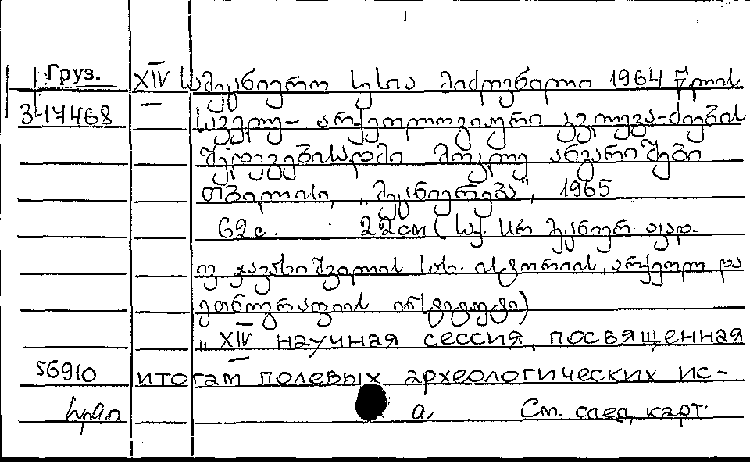 Груз. XIV სამეცნიერო სესია მიძღვნილი 1964 წლის
3-17468 საველე-არქეოლოგიური კვლევა-ძიების
შედეგებისადმი მოკლე ანგარიშები
თბილისი, „მეცნიერება", 1965
62 с. 22 см (საქ. სსრ მეცნიერ. აკად.
ივ. ჯავახიშვილის სახ. ისტორიის, არქეოლ. და
ეთნოგრაფიის ინსტიტუტი)
„XIV научная сессия, посвященная
56910 итогам полевых археологических ис-
а, См. след. карт.